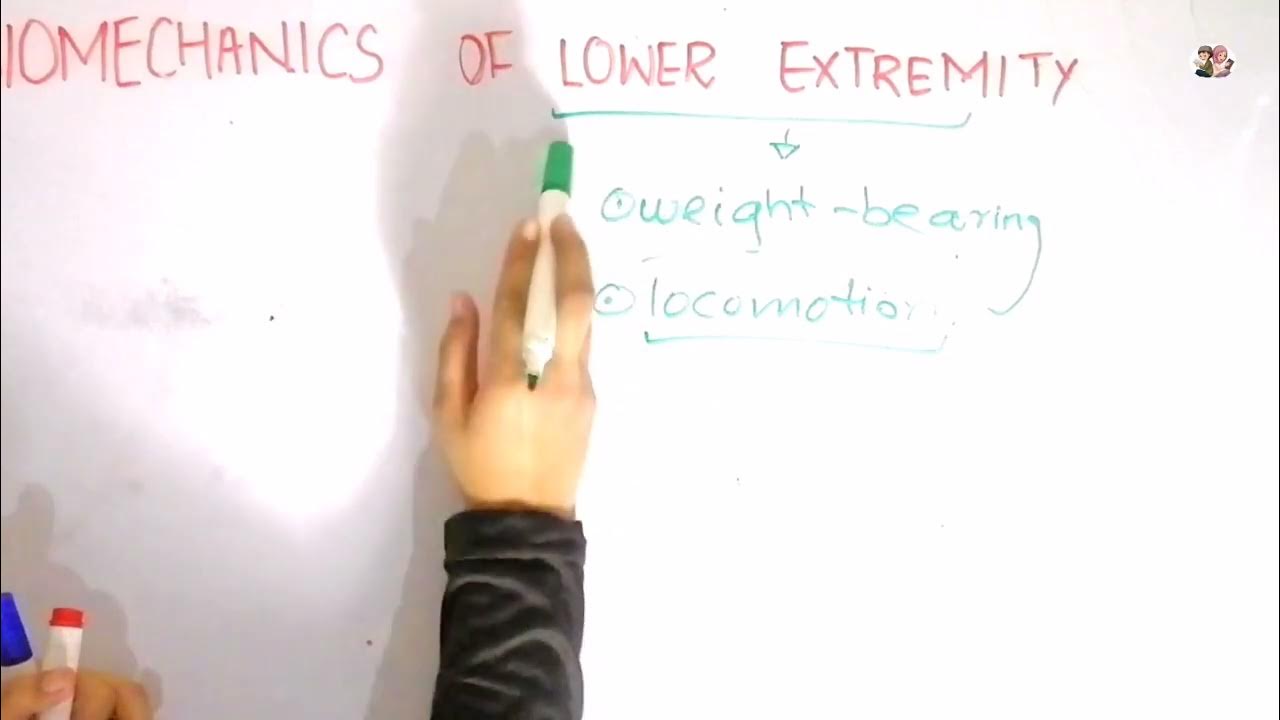 IOMECHANICS OF LOWER EXTREMITY
weight-bearing
locomotion